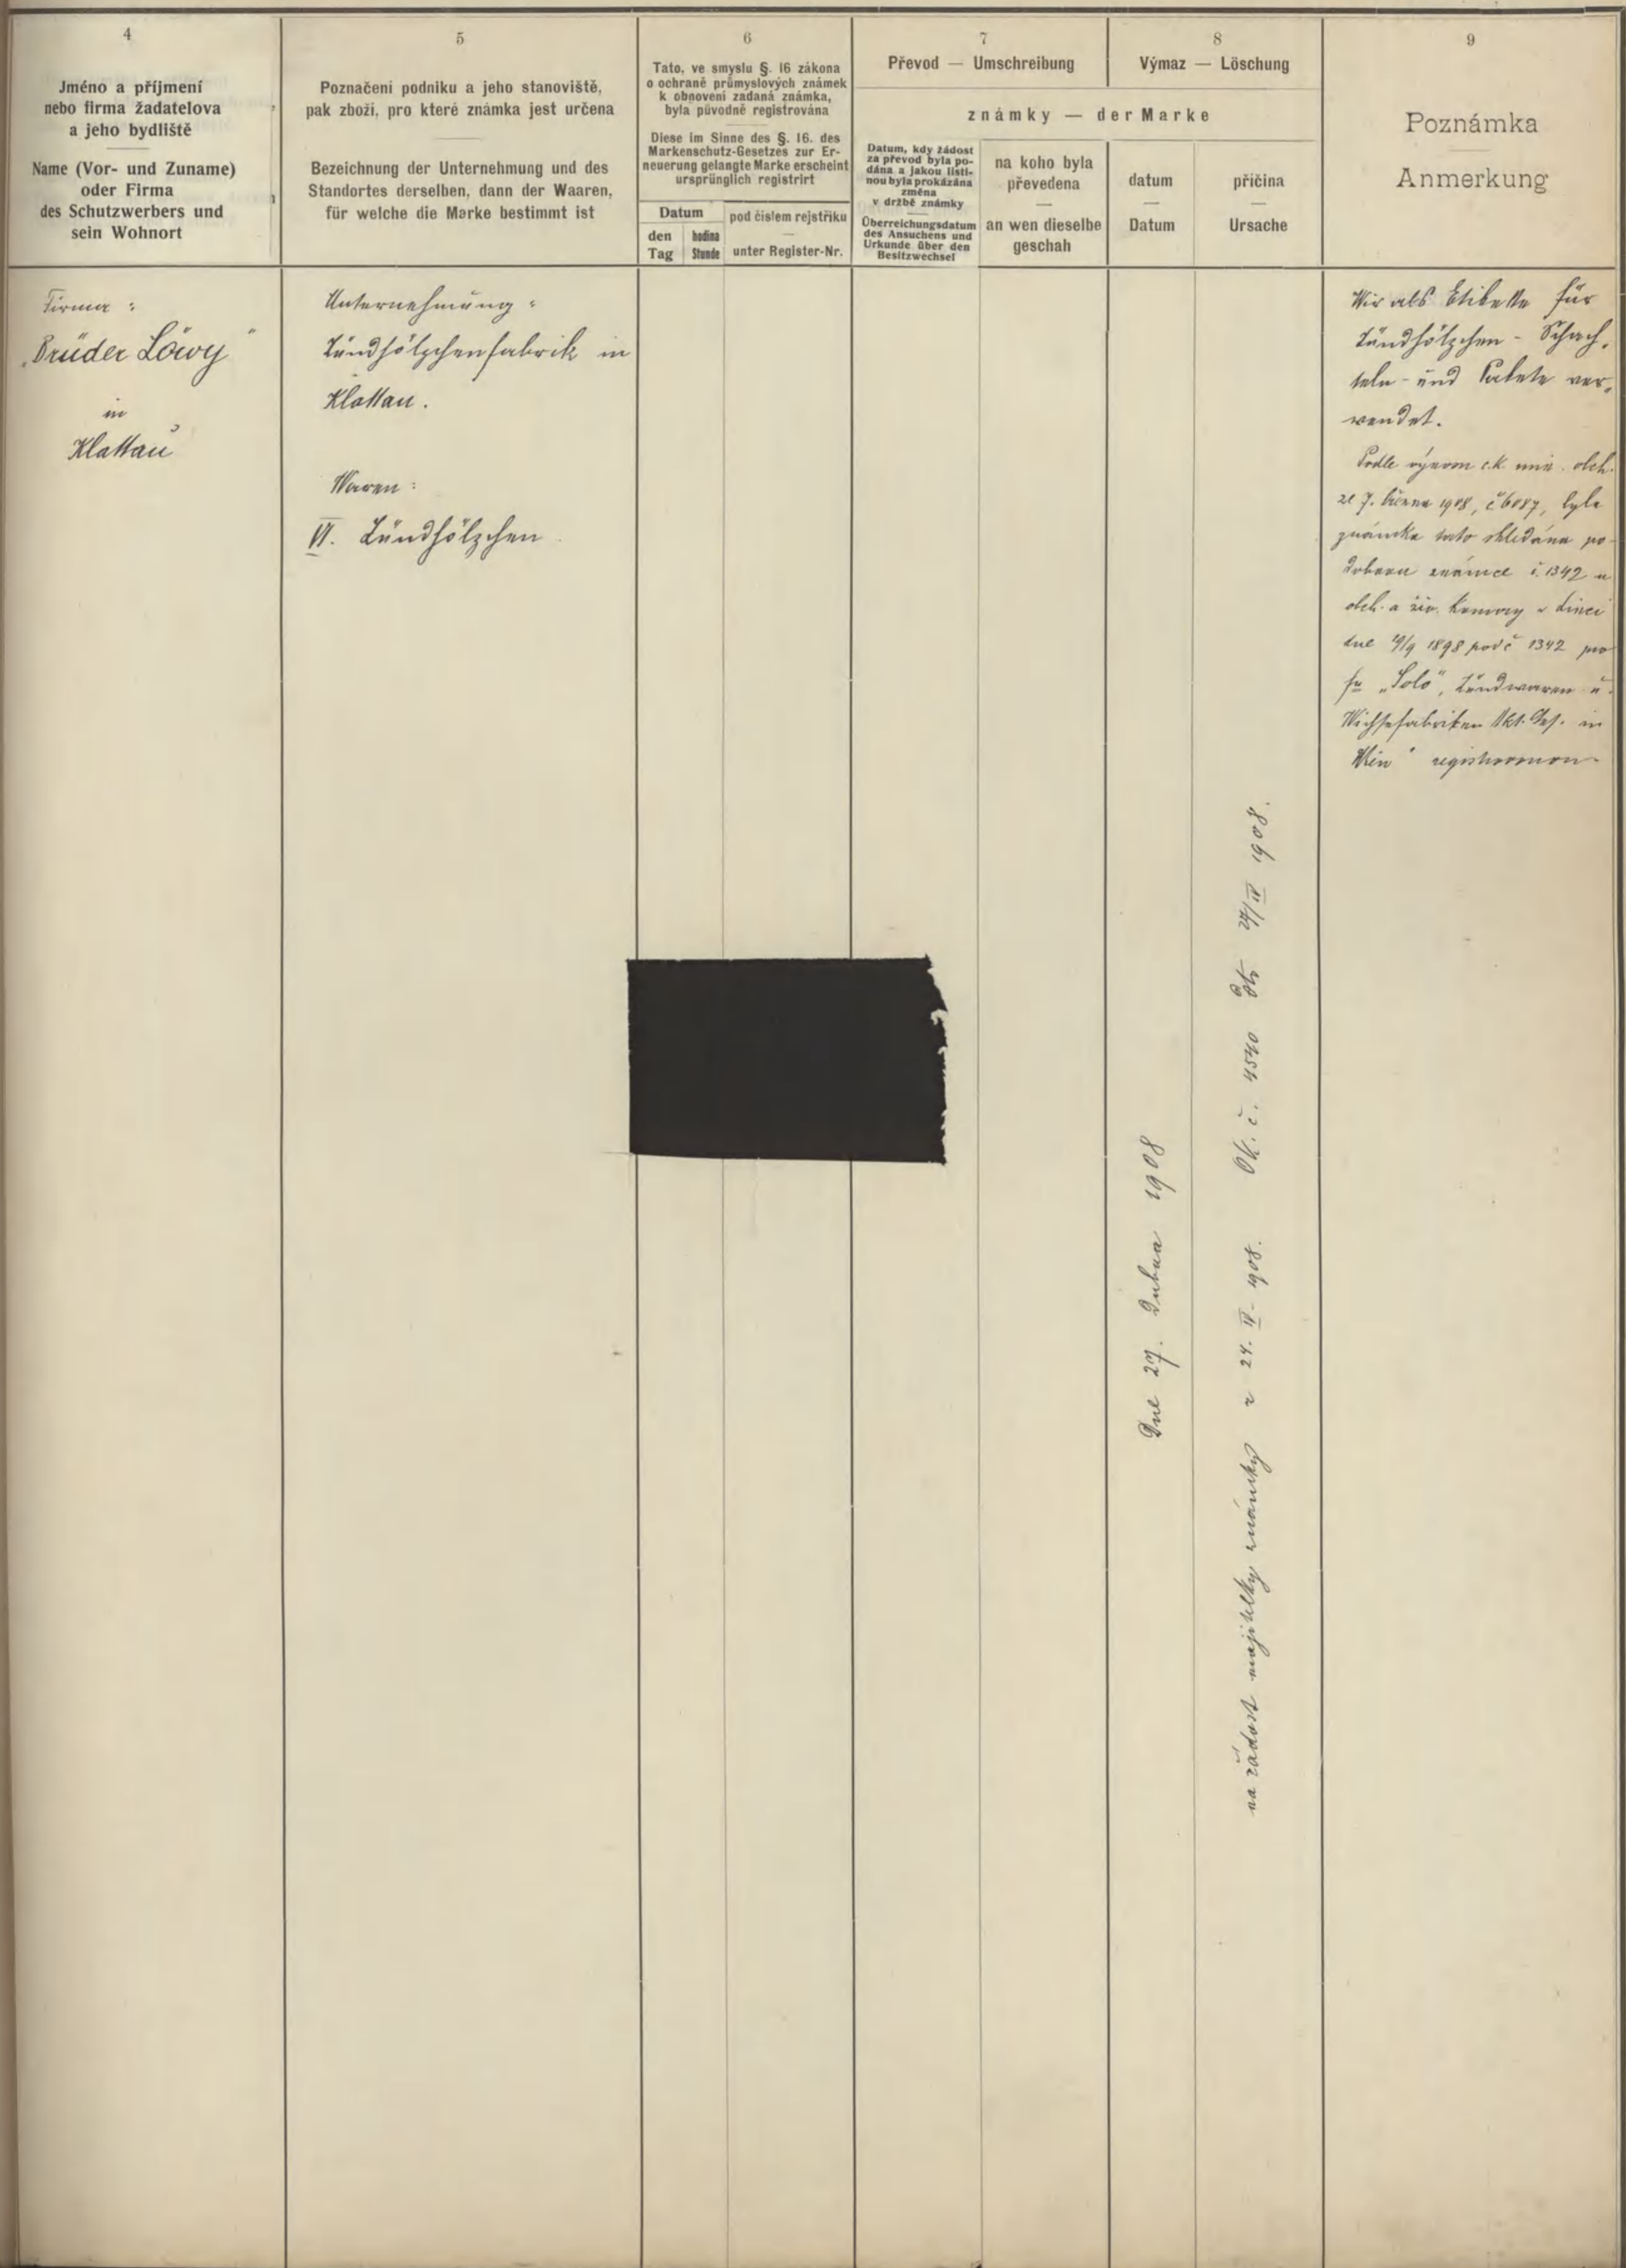 4
Jméno a příjmení
nebo firma žadatelova
a jeho bydliště
Name (Vor- und Zuname)
oder Firma
des Schutzwerbers und
sein Wohnort
5
Poznačení podniku a jeho stanoviště,
pak zboží, pro které známka jest určena
Bezeichnung der Unternehmung und des
Standortes derselben, dann der Waaren,
für welche die Marke bestimmt ist
6
Tato, ve smyslu §. 16 zákona
o ochraně průmyslových známek
k obnovení zadaná známka,
byla původně registrována
Diese im Sinne des §. 16. des
Markenschutz-Gesetzes zur Er-
neuerung gelangte Marke erscheint
ursprünglich registrirt
Datum
den
Tag
hodina
Stunde
pod číslem rejstříku
—
unter Register-Nr.
7
Převod — Umschreibung
8
Výmaz — Löschung
známky — der Marke
Datum, kdy žádost
za převod byla po-
dána a jakou listi-
nou byla prokázána
změna
v držbě známky
Überreichungsdatum
des Ansuchens und
Urkunde über den
Besitzwechsel
na koho byla
převedena
—
an wen dieselbe
geschah
datum
—
Datum
příčina
—
Ursache
9
Poznámka
Anmerkung
Firma :
„Brüder Löwy"
in
Klattau
Unternehmung :
Zündhölzchenfabrik in
Klattau.
Waren :
VI. Zündhölzchen
Dne 27. dubna 1908
na žádost majitelky známky z 24. IV. 1908. č. 4540 27/IV 1908.
Wir als Etikette für
Zündhölzchen - Schach-
teln- und Pakete ver-
wendet.
Podle výnosu c.k. min. obch.
ze 7. března 1908, č 6087, byla
známka tato shledána po-
dobnou známce č. 1342 u
obch. a živ. komory v Linci
dne 1898 pod č 1342 pro
fu „Solo", Zündwaren- u.
Wichsefabriken Akt. Ges. in
Wien"